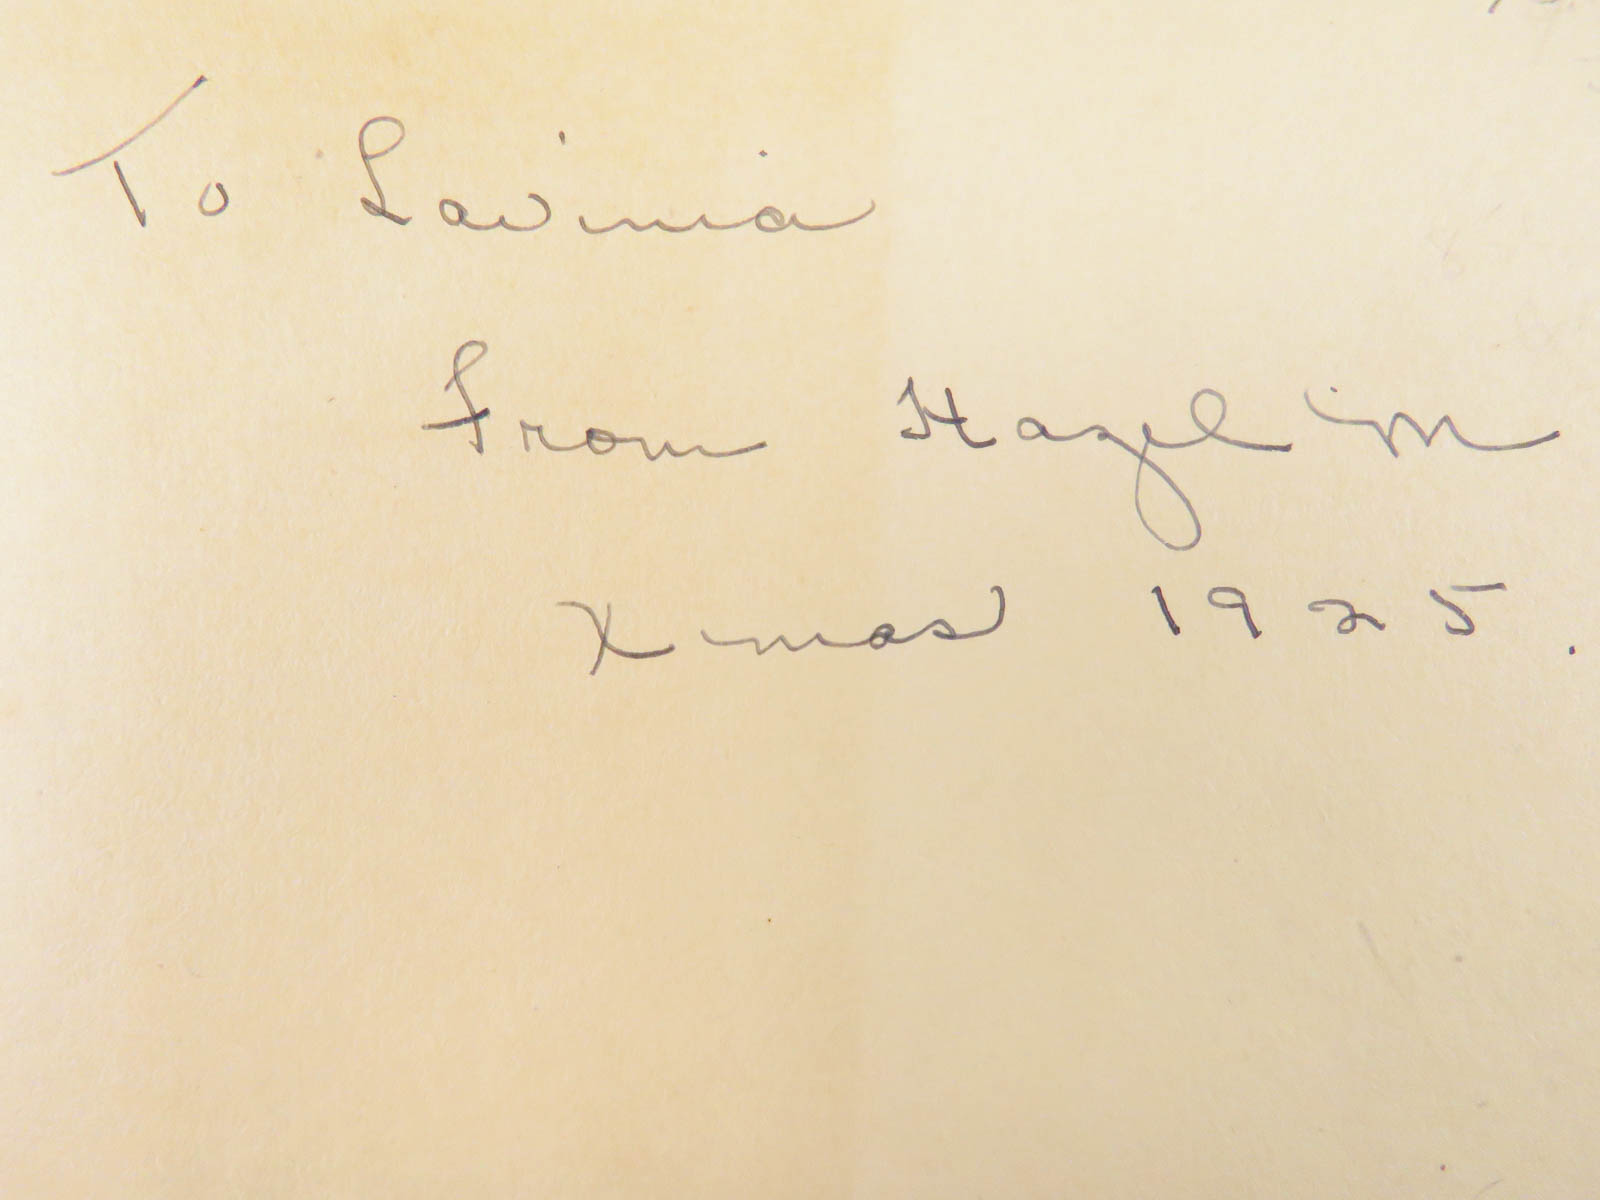 To Lavinia
From Hazel M
Xmas 1925.